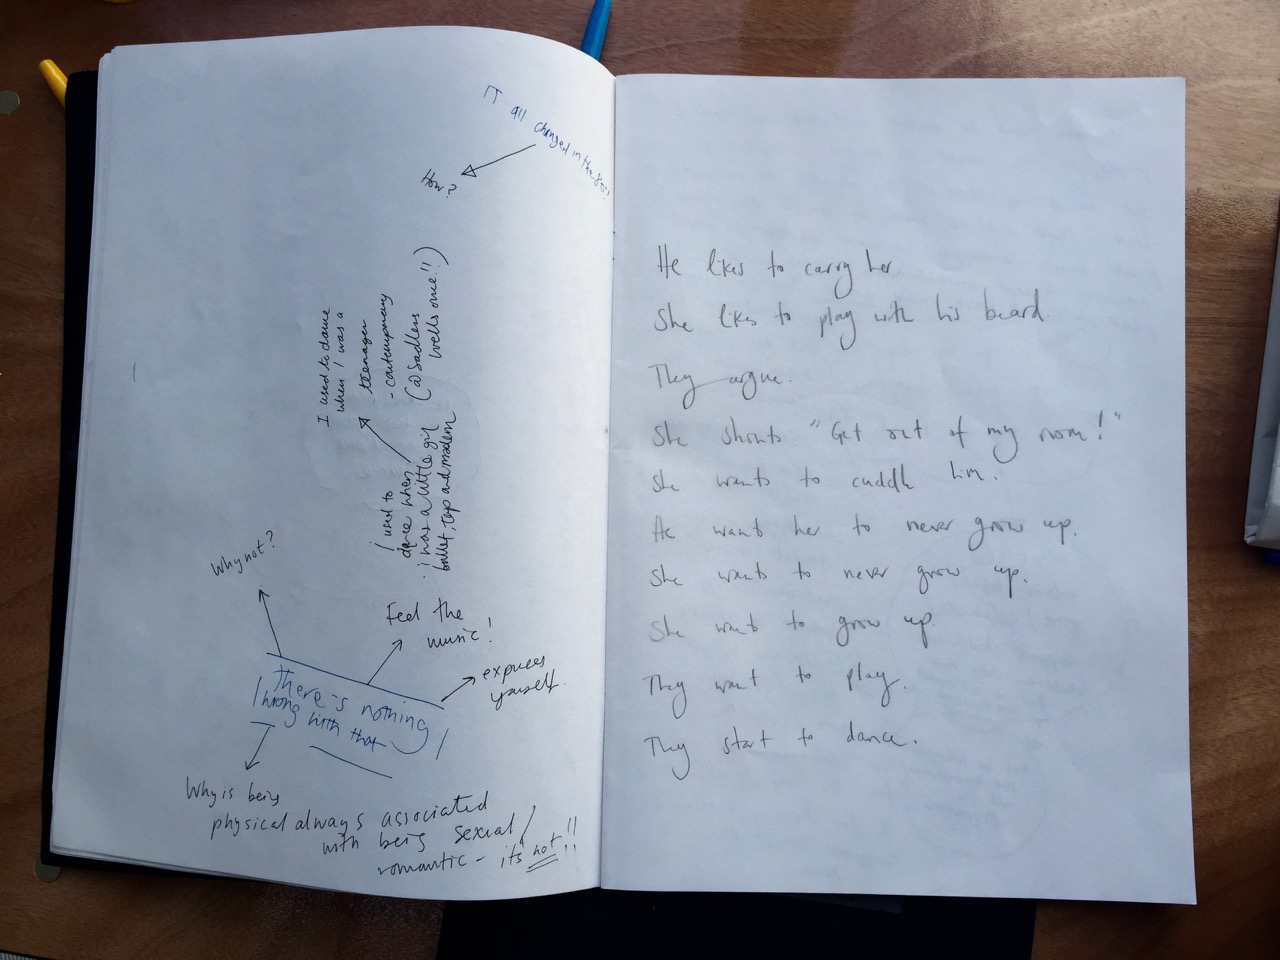 IT all changed in the 80s!
How?
I used to dance
when I was a
teenager
- contemporary
(@ Sadlers
Wells once!!)
I used to
dance when
i was a little girl
ballet, tap and modern
Why not?
Feel the
music!
express
yourself.
There's nothing
wrong with that
Why is being
physical always associated
with being sexual/
romantic - it's not!!
He likes to carry her
She likes to play with his beard.
They argue.
She shouts "Get out of my room!"
She wants to cuddle him.
He want her to never grow up.
She wants to never grow up.
She wants to grow up
They want to play.
They start to dance.